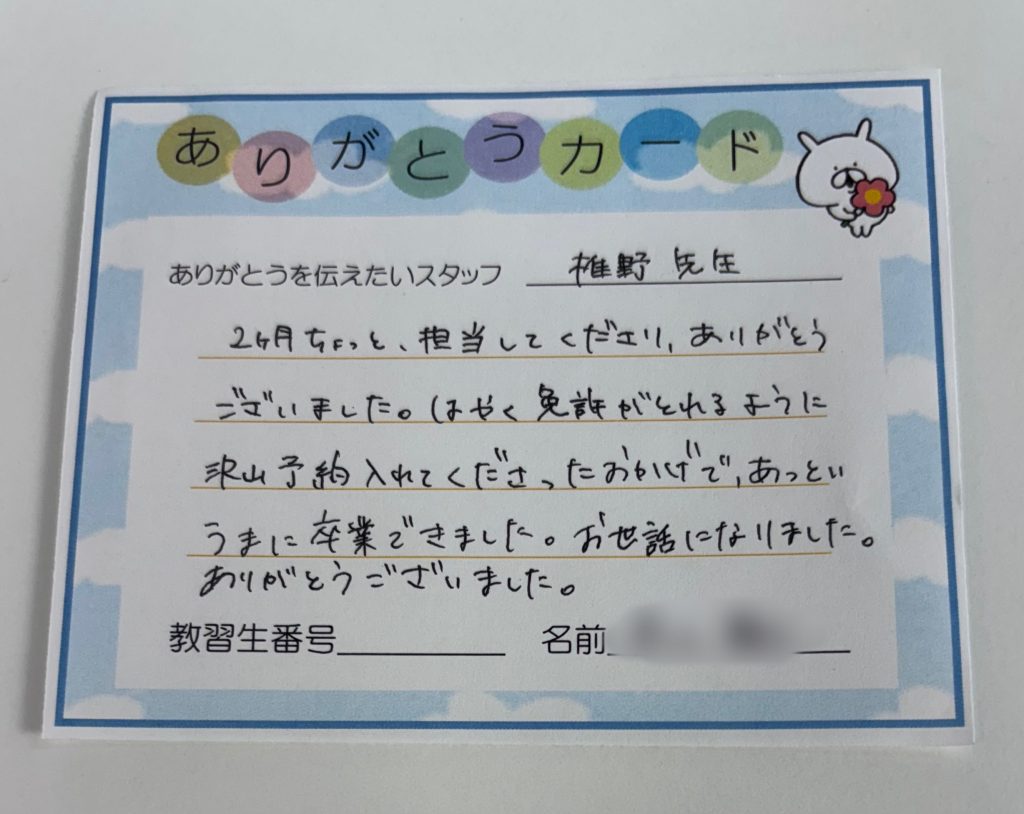 ありがとうカード
ありがとうを伝えたいスタッフ 椎野 先生
2ヶ月ちょっと、担当してくださり、ありがとう
ございました。はやく免許がとれるように
沢山予約入れてくださったおかげで、あっとい
うまに卒業できました。お世話になりました。
ありがとうございました。
教習生番号 名前